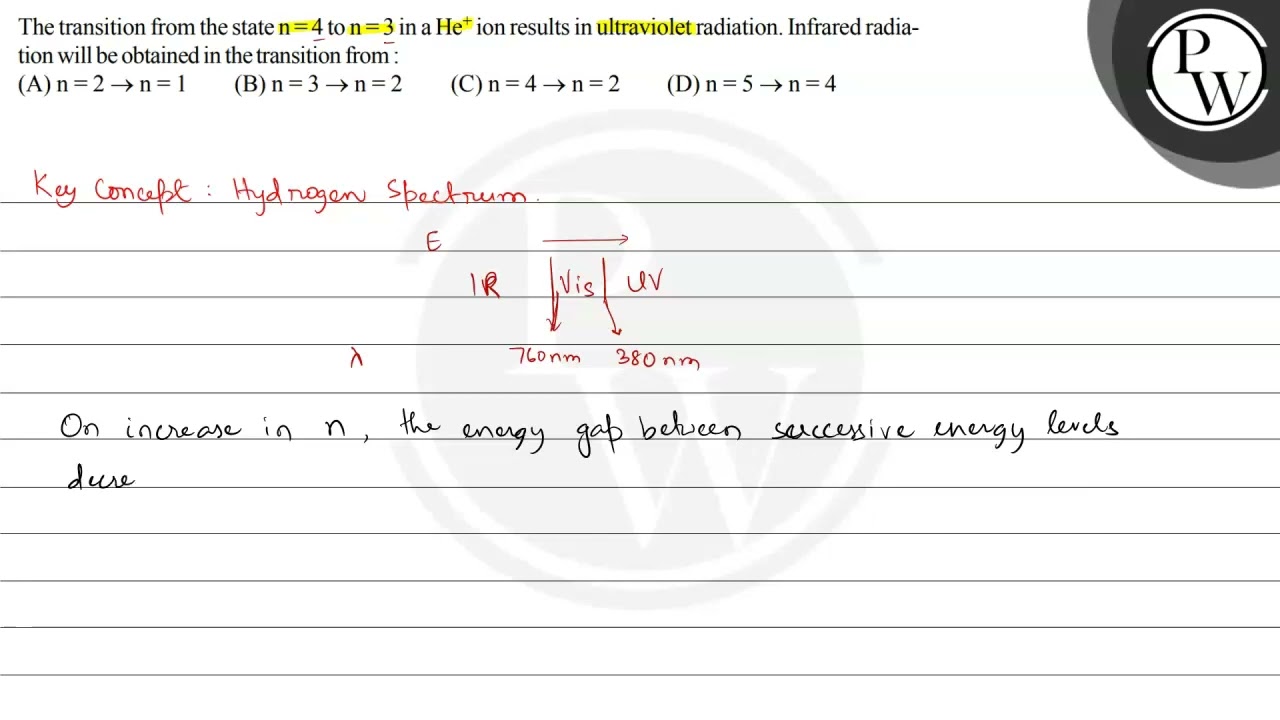 The transition from the state n = 4 to n = 3 in a He⁺ ion results in ultraviolet radiation. Infrared radia-
tion will be obtained in the transition from :
(A) n = 2 → n = 1 (B) n = 3 → n = 2 (C) n = 4 → n = 2 (D) n = 5 → n = 4
P
W
Key Concept : Hydrogen Spectrum.
E
IR Vis UV
λ 760nm 380nm
On increase in n, the energy gap between successive energy levels
decre